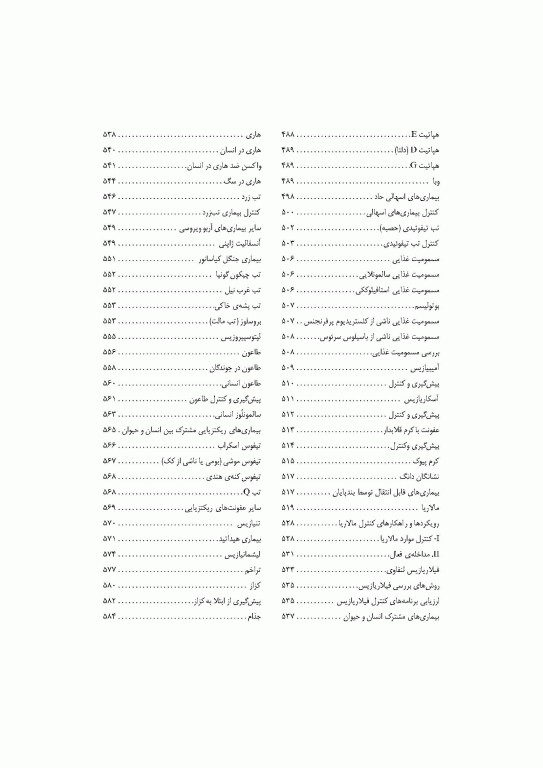 هپاتیت E ..................................... ۴۸۸
هپاتیت D (دلتا) ............................... ۴۸۹
هپاتیت G ..................................... ۴۸۹
وبا ........................................... ۴۸۹
بیماری‌های اسهالی حاد ......................... ۴۹۸
کنترل بیماری‌های اسهالی ....................... ۵۰۰
تب تیفوئیدی (حصبه) ........................... ۵۰۲
کنترل تب تیفوئیدی ............................ ۵۰۳
مسمومیت غذایی ................................ ۵۰۶
مسمومیت غذایی سالمونلایی ..................... ۵۰۶
مسمومیت غذایی استافیلوککی .................... ۵۰۶
بوتولیسم ...................................... ۵۰۷
مسمومیت غذایی ناشی از کلستریدیوم پرفرنجنس .. ۵۰۷
مسمومیت غذایی ناشی از باسیلوس سرئوس ....... ۵۰۸
بررسی مسمومیت غذایی ......................... ۵۰۸
آمیبیازیس ..................................... ۵۰۹
پیش‌گیری و کنترل ............................. ۵۱۰
آسکاریازیس ................................... ۵۱۱
پیش‌گیری و کنترل ............................. ۵۱۲
عفونت با کرم قلابدار .......................... ۵۱۳
پیش‌گیری وکنترل .............................. ۵۱۴
کرم پیوک ..................................... ۵۱۵
نشانگان دانگ ................................. ۵۱۷
بیماری‌های قابل انتقال توسط بندپایان .......... ۵۱۷
مالاریا ........................................ ۵۱۹
رویکردها و راهکارهای کنترل مالاریا ............ ۵۲۸
I- کنترل موارد مالاریا ......................... ۵۲۸
II. مداخله‌ی فعال .............................. ۵۳۱
فیلاریازیس لنفاوی ............................. ۵۳۳
روش‌های بررسی فیلاریازیس ..................... ۵۳۵
ارزیابی برنامه‌های کنترل فیلاریازیس ........... ۵۳۵
بیماری‌های مشترک انسان و حیوان ............. ۵۳۷
هاری ......................................... ۵۳۸
هاری در انسان ................................ ۵۴۰
واکسن ضد هاری در انسان .................... ۵۴۱
هاری در سگ ................................. ۵۴۴
تب زرد ....................................... ۵۴۶
کنترل بیماری تب‌زرد .......................... ۵۴۷
سایر بیماری‌های آربو ویروسی ................. ۵۴۹
آنسفالیت ژاپنی ............................... ۵۴۹
بیماری جنگل کیاسانور ........................ ۵۵۱
تب چیکون گونیا .............................. ۵۵۲
تب غرب نیل .................................. ۵۵۲
تب پشه‌ی خاکی ............................... ۵۵۳
بروسلوز (تب مالت) ............................ ۵۵۳
لپتوسپیروزیس ................................. ۵۵۵
طاعون ........................................ ۵۵۶
طاعون در جوندگان ............................ ۵۵۸
طاعون انسانی ................................. ۵۶۰
پیش‌گیری و کنترل طاعون ..................... ۵۶۱
سالمونلّوز انسانی .............................. ۵۶۳
بیماری‌های ریکتزیایی مشترک بین انسان و حیوان . ۵۶۵
تیفوس اسکراب ............................... ۵۶۶
تیفوس موشی (بومی یا ناشی از کک) ............ ۵۶۷
تیفوس کنه‌ی هندی ............................ ۵۶۸
تب Q ......................................... ۵۶۸
سایر عفونت‌های ریکتزیایی ..................... ۵۶۹
تنیازیس ....................................... ۵۷۰
بیماری هیداتید ................................ ۵۷۱
لیشمانیازیس ................................... ۵۷۴
تراخم ......................................... ۵۷۷
کزاز .......................................... ۵۸۰
پیش‌گیری از ابتلا به کزاز ...................... ۵۸۲
جذام .......................................... ۵۸۴